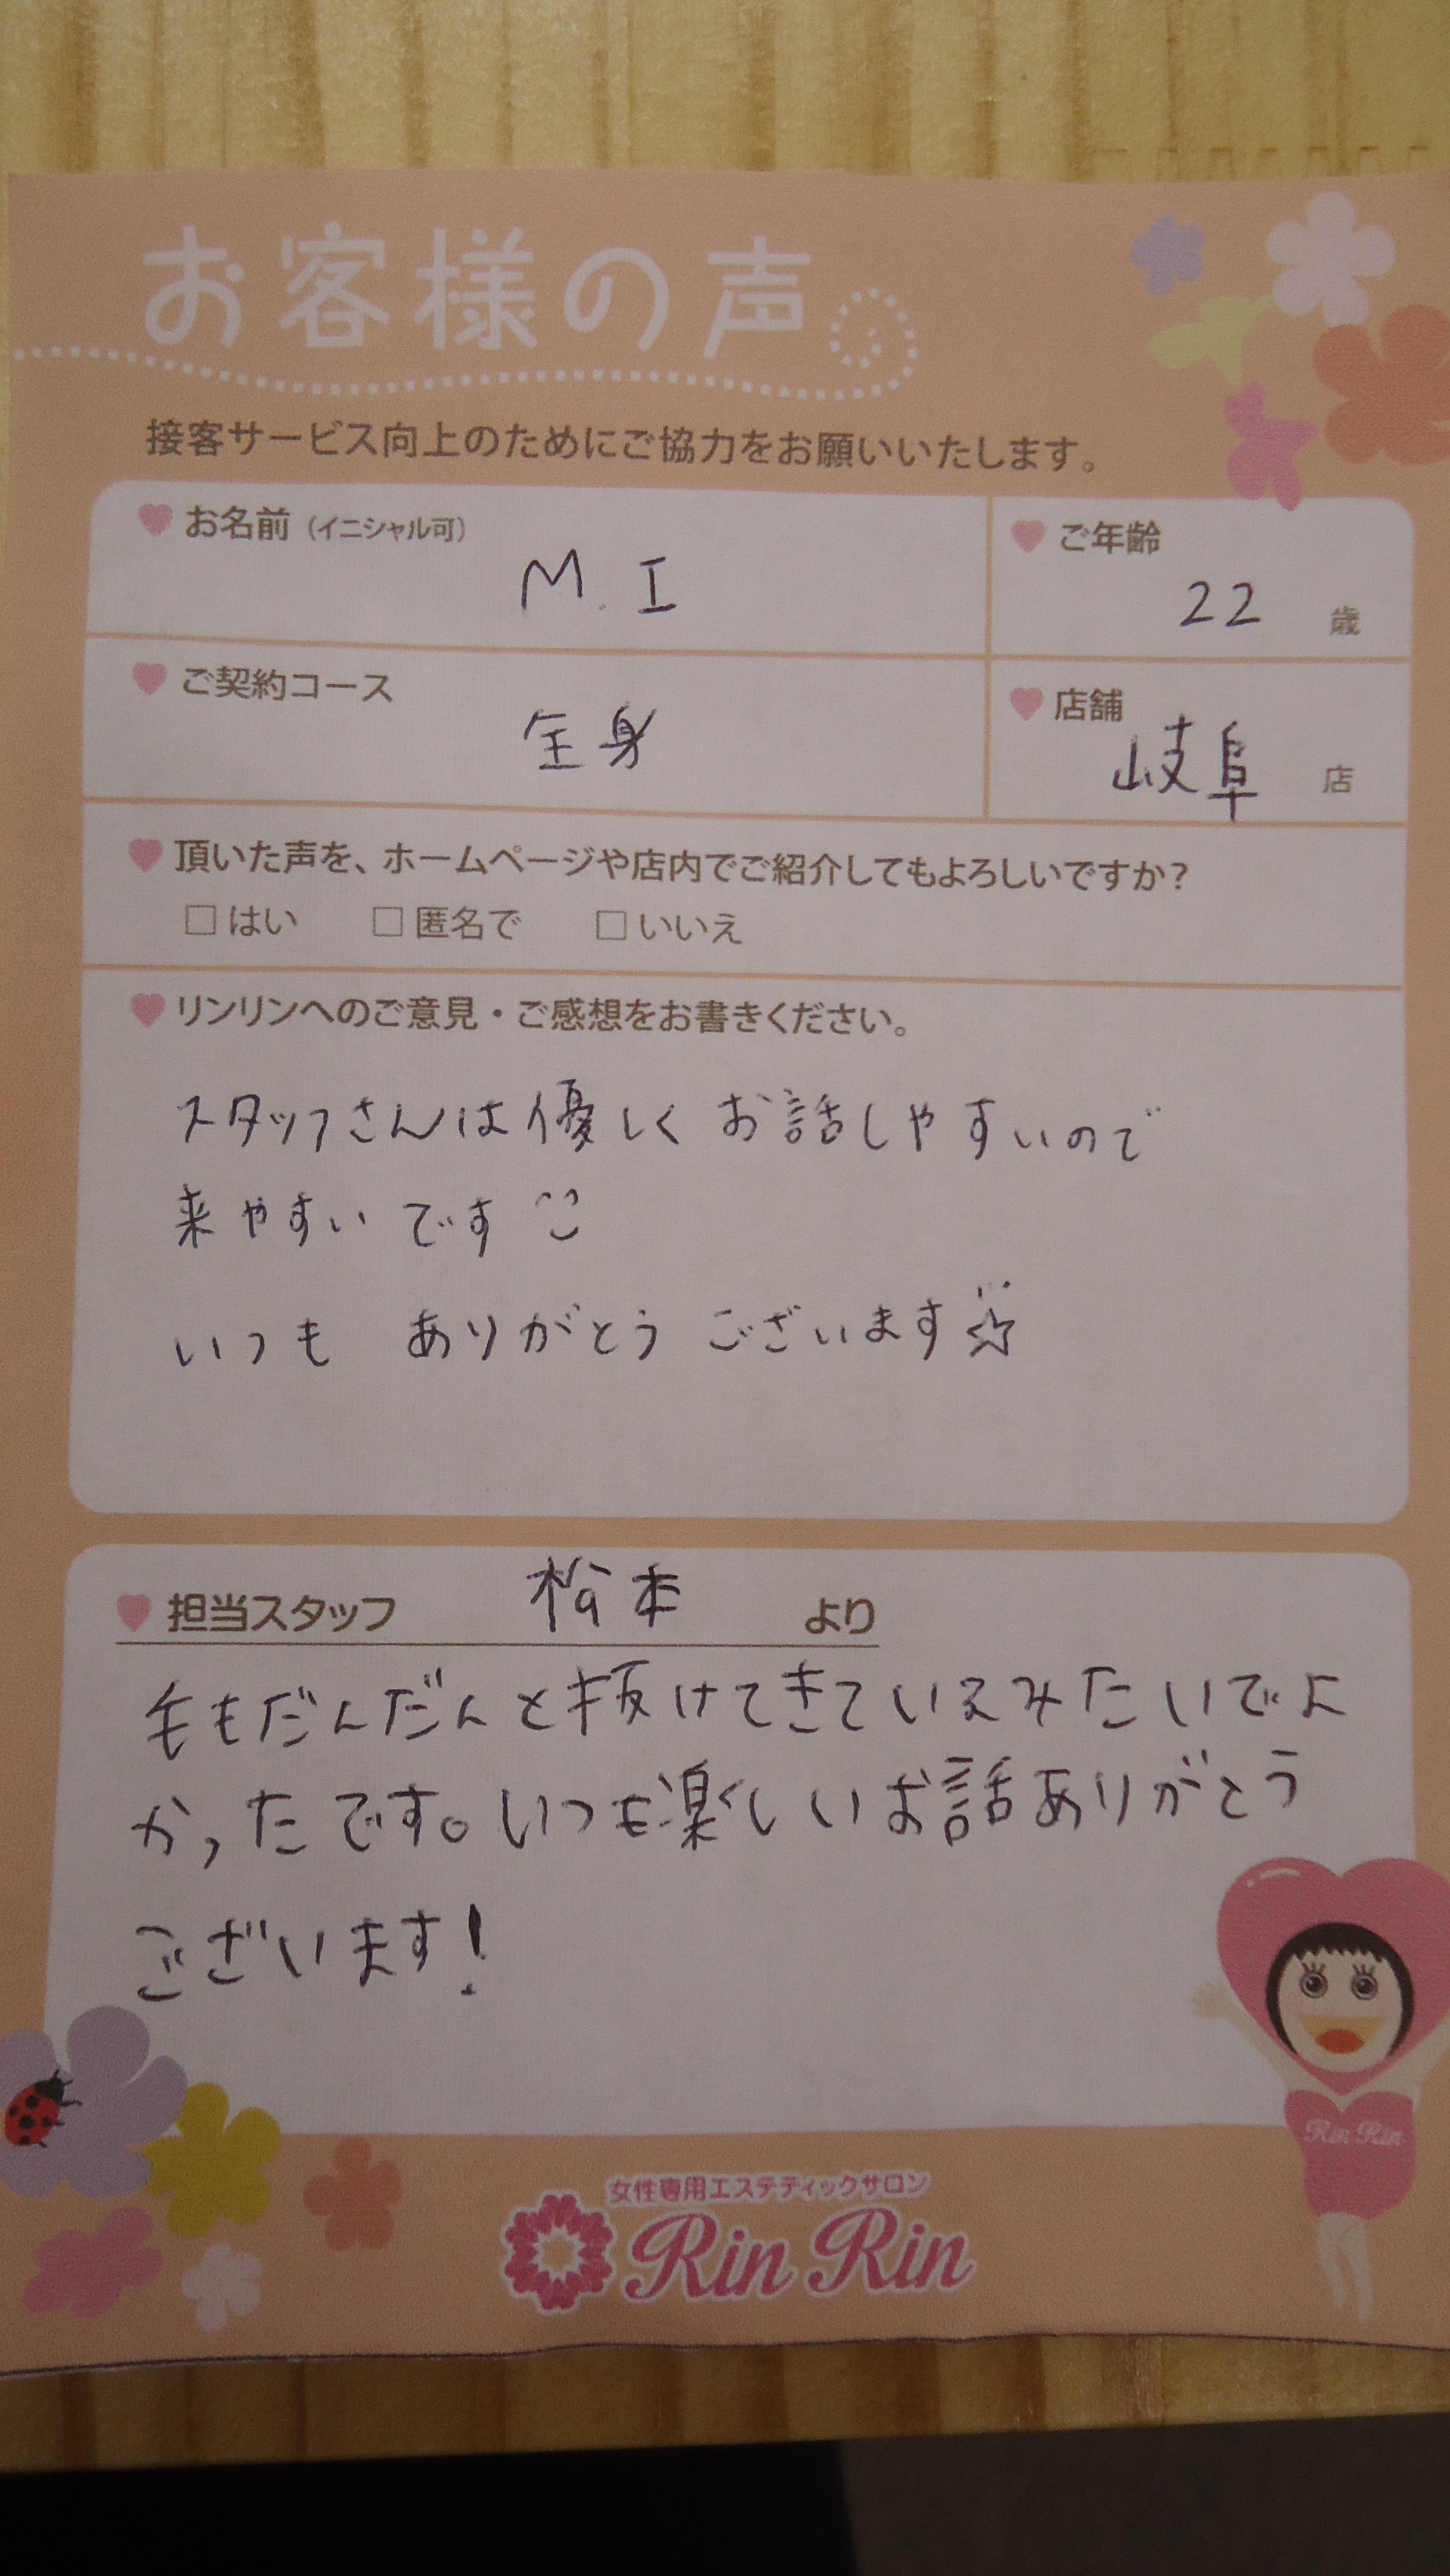 お客様の声
接客サービス向上のためにご協力をお願いいたします。
お名前（イニシャル可）
M.I
ご年齢
22 歳
ご契約コース
全身
店舗
岐阜 店
頂いた声を、ホームページや店内でご紹介してもよろしいですか？
□はい □匿名で □いいえ
リンリンへのご意見・ご感想をお書きください。
スタッフさんは優しくお話しやすいので
来やすいです
いつも ありがとうございます☆
担当スタッフ 松本 より
毛もだんだんと抜けてきているみたいでよ
かったです。いつも楽しいお話ありがとう
ございます！
Rin Rin
女性専用エステティックサロン
Rin Rin